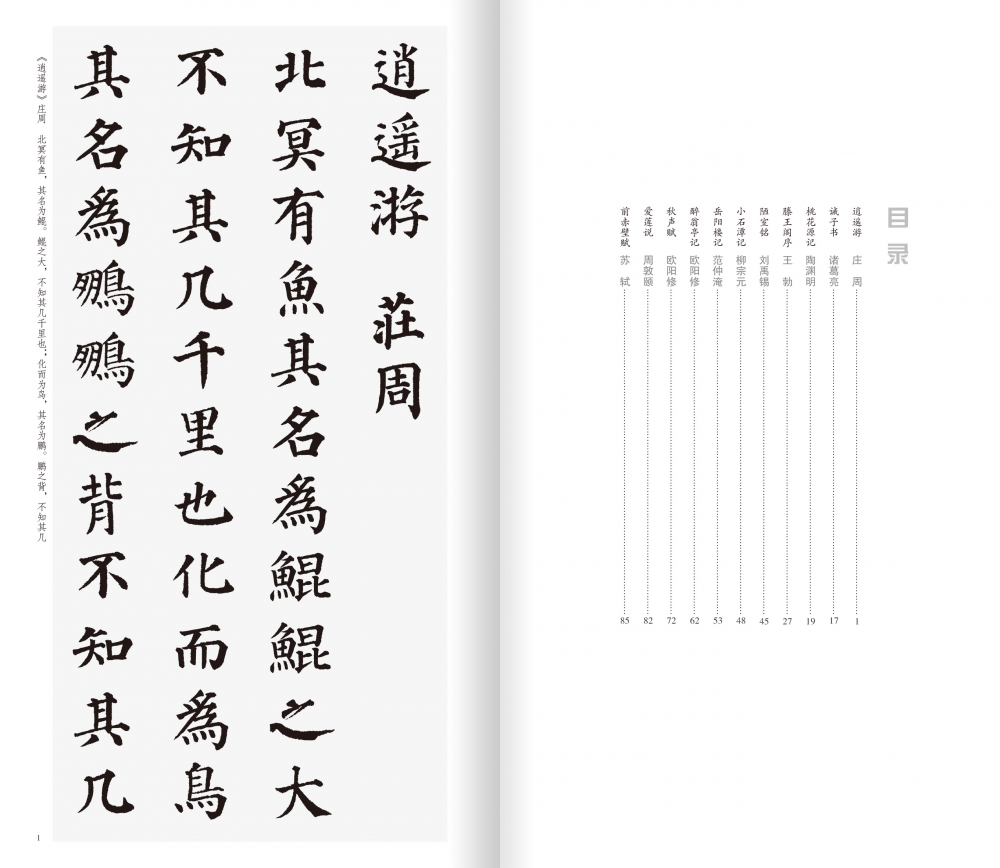 目录
逍遥游 庄周 1
诫子书 诸葛亮 17
桃花源记 陶渊明 19
滕王阁序 王勃 27
陋室铭 刘禹锡 45
小石潭记 柳宗元 48
岳阳楼记 范仲淹 53
醉翁亭记 欧阳修 62
秋声赋 欧阳修 72
爱莲说 周敦颐 82
前赤壁赋 苏轼 85
逍遥游 莊周
北冥有魚其名為鯤鯤之大
不知其几千里也化而為鳥
其名為鵬鵬之背不知其几
《逍遥游》庄周 北冥有鱼，其名为鲲。鲲之大，不知其几千里也；化而为鸟，其名为鹏。鹏之背，不知其几
1